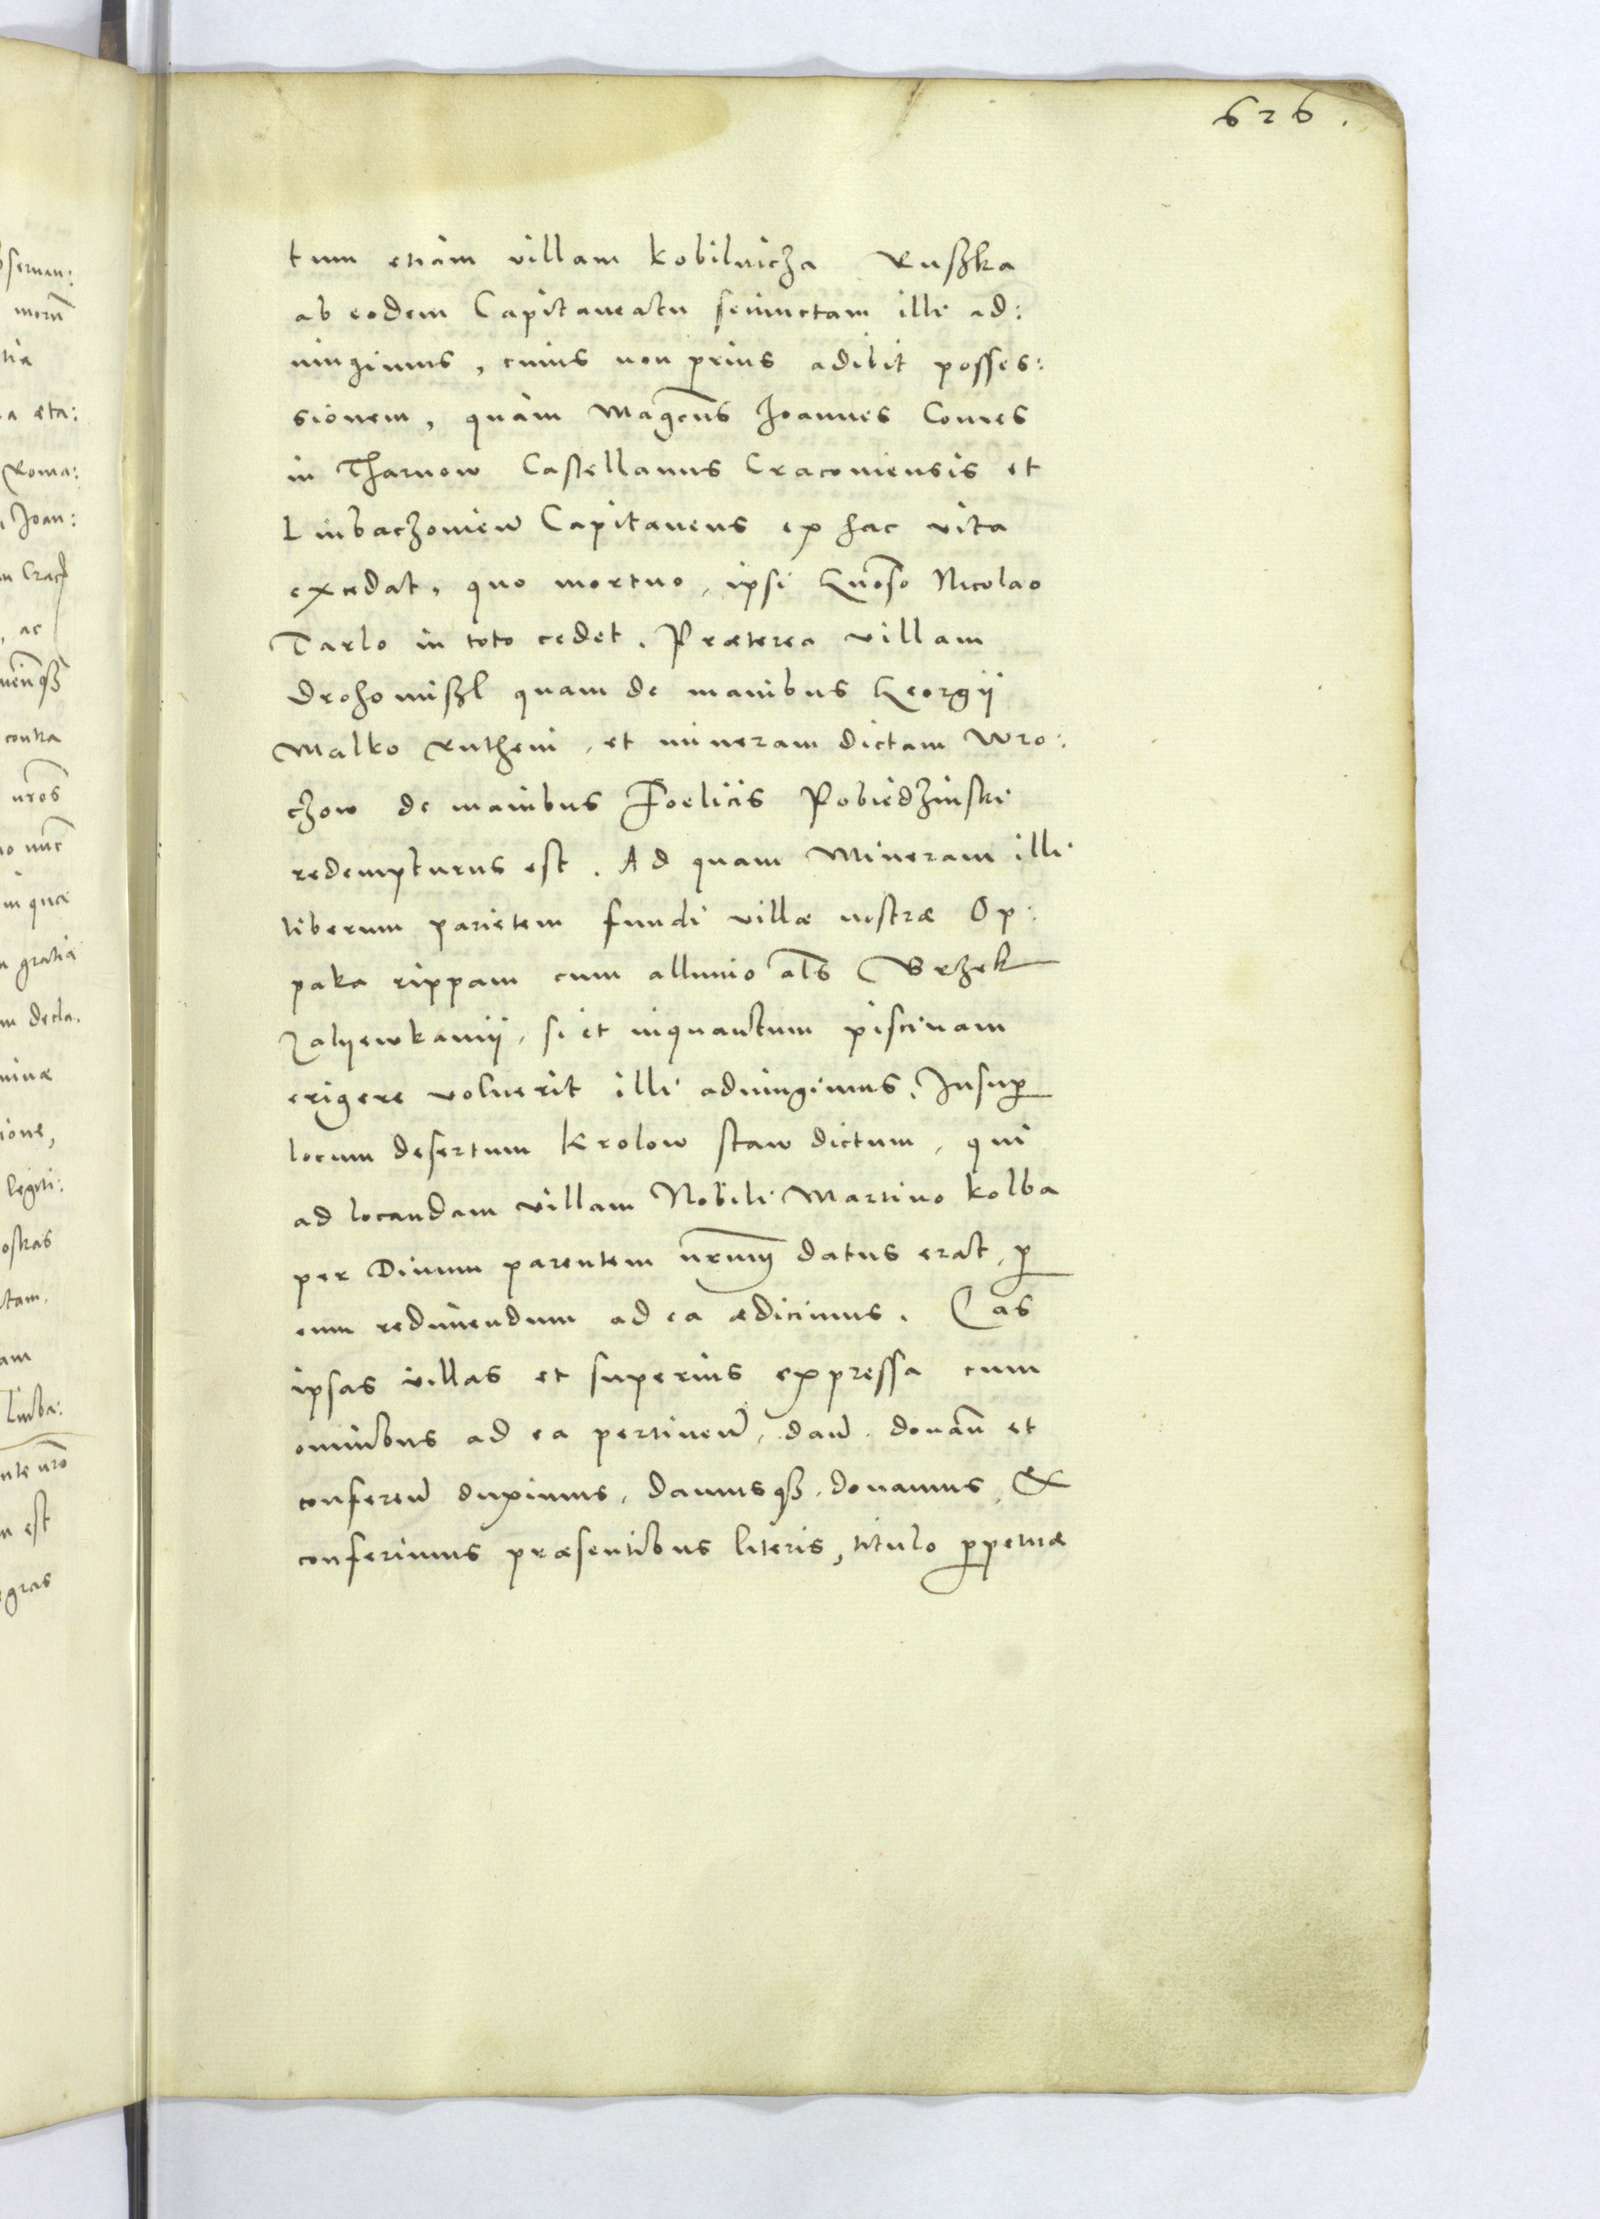 626.
tum etiam villam Kobilnicza Ruszka
ab eodem Capitaneatu seiunctam illi ad:
iungimus, cuius non prius adibit posses:
sionem, quàm Magcus Joannes Comes
in Tharnow Castellanus Cracoviensis et
Lubaczovien Capitaneus ex hac vita
excedat, quo mortuo, ipsi Gnoso Nicolao
Tarlo in toto cedet. Præterea villam
Drohomiszl quam de manibus Georgii
Malko Rutheni, et mineram dictam Wro:
czow de manibus Foelicis Pobiedzinski
redempturus est. Ad quam Mineram illi
liberum parietem fundi villæ nostræ Op:
paka rippam cum alluvio als Brzek
Zalyewkamii, si et inquantum piscinam
erigere voluerit illi adiungimus. Insup
locum desertum Krolow staw dictum, qui
ad locandam villam Nobili Martino Kolba
per Divum parentem nrum datus erat, p
eum redimendum ad ea ædicimus. Eas
ipsas villas et superius expressa cum
omnibus ad ea pertinen, dan. donan et
conferen duximus, damusq. donamus, &
conferimus præsentibus literis, titulo ppetuæ